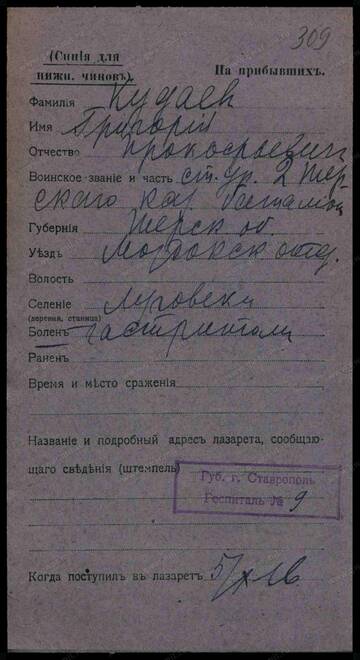 309
(Синія для
нижн. чиновъ).
На прибывшихъ.
Фамилія Кудаев
Имя Григорій
Отчество Прокофьевич
Воинское званіе и часть ст. ур. 2 Тер-
скаго каз
Губернія Терск об.
Уѣздъ Моздокск отд.
Волость
Селеніе
(деревня, станица)
Боленъ
Раненъ
Время и мѣсто сраженія
Названіе и подробный адресъ лазарета, сообщаю-
щаго свѣдѣнія (штемпель)
Губ. г. Ставрополь
Госпиталь № 9
Когда поступилъ въ лазаретъ 5/